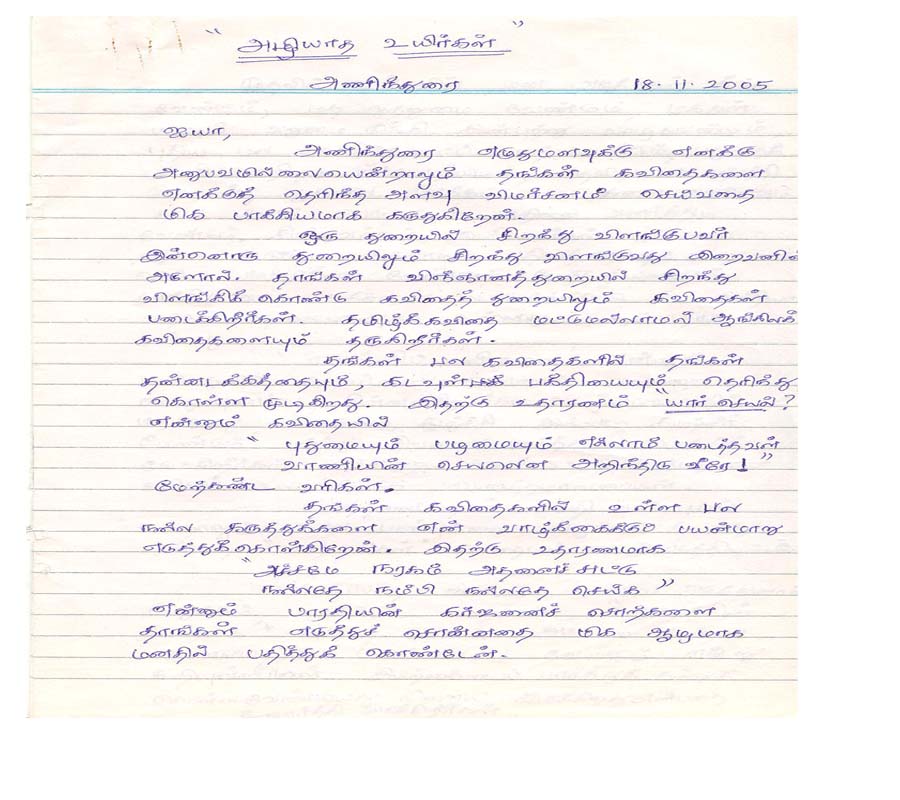 " அழியாத உயிர்கள் "
அணிந்துரை 18.11.2005
ஐயா,
அணிந்துரை எழுதுமளவுக்கு எனக்கு
அனுபவமில்லையென்றாலும் தங்கள் கவிதைகளை
எனக்குத் தெரிந்த அளவு விமர்சனம் செய்வதை
மிக பாக்கியமாக கருதுகிறேன்.
ஒரு துறையில் சிறந்து விளங்குபவர்
இன்னொரு துறையிலும் சிறந்து விளங்குவது இறைவனின்
அருளால். தாங்கள் விஞ்ஞானத்துறையில் சிறந்து
விளங்கிக் கொண்டு கவிதைத் துறையிலும் கவிதைகள்
படைக்கிறீர்கள். தமிழ்க்கவிதை மட்டுமல்லாமல் ஆங்கிலக்
கவிதைகளையும் தருகிறீர்கள்.
தங்கள் பல கவிதைகளில் தங்கள்
தன்னடக்கத்தையும், கடவுள் பக்தியையும் தெரிந்து
கொள்ள முடிகிறது. இதற்கு உதாரணம் "யார் செயல்?
என்னும் கவிதையில்
" புதுமையும் பழமையும் எல்லாம் படைத்தவள்
வாணியின் செயலென அறிந்திடு வீரே! "
மேற்கண்ட வரிகள்.
தங்கள் கவிதைகளில் உள்ள பல
நல்ல கருத்துக்களை என் வாழ்க்கைக்கும் பயன்மாறு
எடுத்துக்கொள்கிறேன். இதற்கு உதாரணமாக
"அச்சமே நரகம் அதனைச் சுட்டு
நல்லதே நம்பி நல்லதே செய்க "
என்னும் பாரதியின் கர்ஜனைச் சொற்களை
தாங்கள் எடுத்துச் சொன்னதை மிக ஆழமாக
மனதில் பதித்துக் கொண்டேன்.